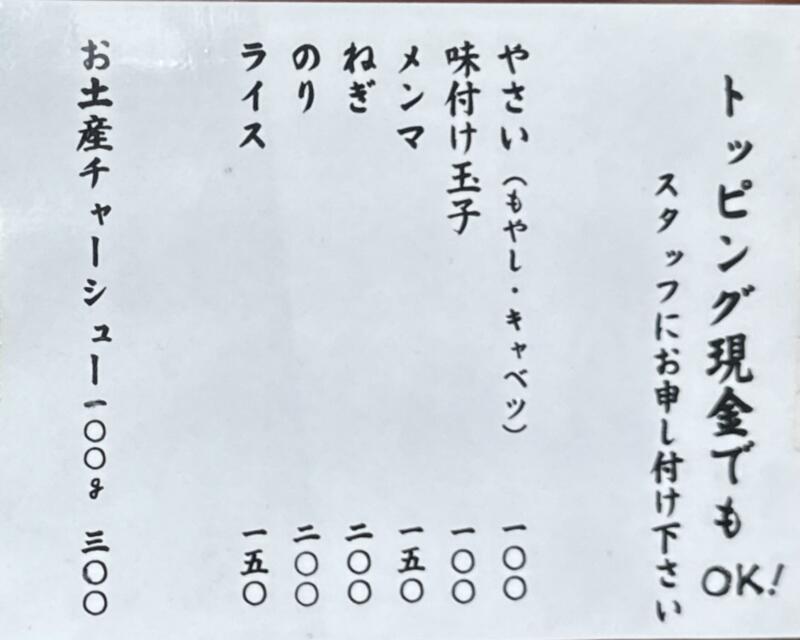 トッピング現金でもOK!
スタッフにお申し付け下さい
やさい（もやし・キャベツ） 一〇〇
味付け玉子 一〇〇
メンマ 一五〇
ねぎ 二〇〇
のり 二〇〇
ライス 一五〇
お土産チャーシュー一〇〇g 三〇〇